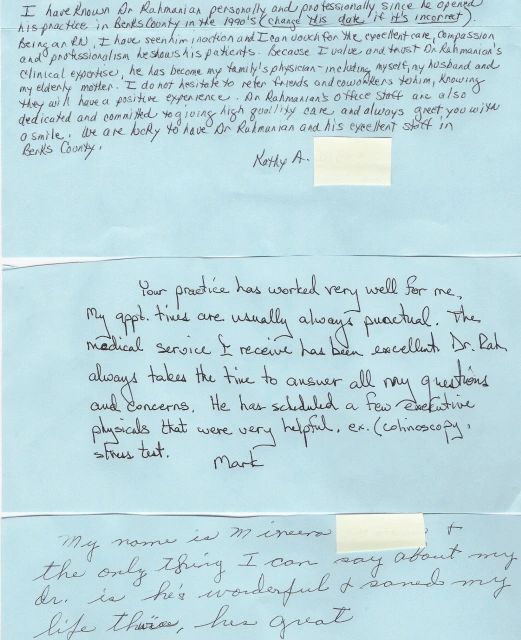 I have known Dr Rahmanian personally and professionally since he opened
his practice in Berks County in the 1990's (change this date if it's incorrect).
Being an RN, I have seen him in action and I can vouch for the excellent care, compassion
and professionalism he shows his patients. Because I value and trust Dr Rahmanian's
clinical expertise, he has become my family's physician - including myself, my husband and
my elderly mother. I do not hesitate to refer friends and coworkers to him, knowing
they will have a positive experience. Dr Rahmanian's office staff are also
dedicated and committed to giving high quality care and always greet you with
a smile. We are lucky to have Dr Rahmanian and his excellent staff in
Berks County.
Kathy A.
Your practice has worked very well for me.
My appt. times are usually always punctual. The
medical service I receive has been excellent. Dr. Rah
always takes the time to answer all my questions
and concerns. He has scheduled a few executive
physicals that were very helpful. ex. (colinoscopy,
stress test.
Mark
My name is Mineera &
the only thing I can say about my
dr. is he's wonderful & saned my
life twice, hes great